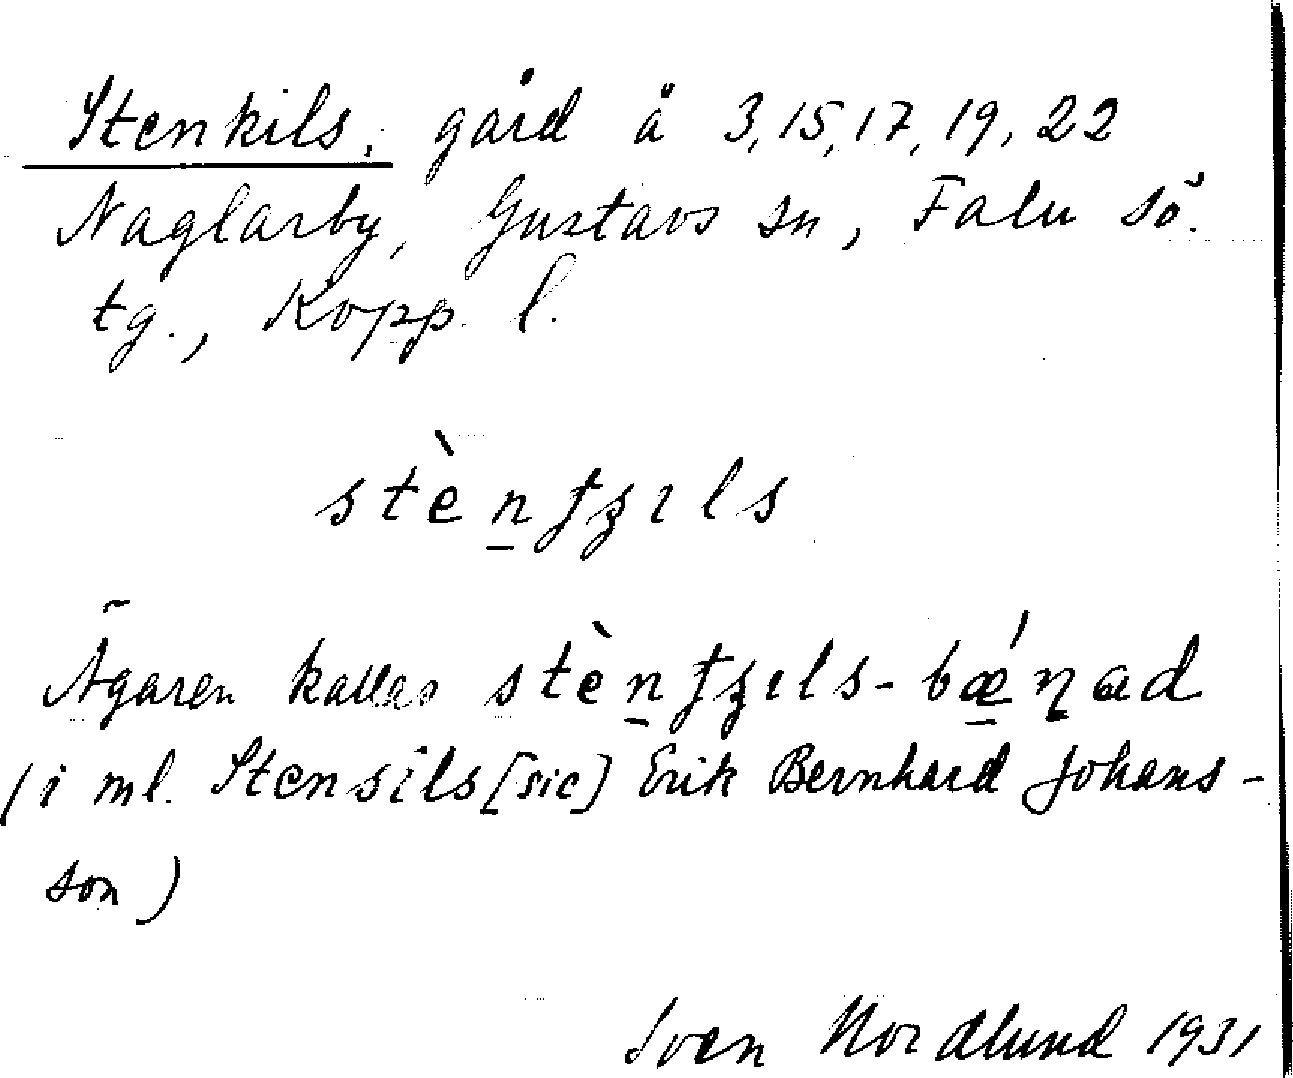 Stenkils, gård å 3, 15, 17, 19, 22
Naglarby, Gustavs sn, Falu sö.
tg., Kopp. l.
stèn̲ʈʒɪls
Ägaren kallas stèn̲ʈʒɪls-bǽ̲ɳad
(i ml. Stensils [sic] Erik Bernhard Johans-
son)
Sven Nordlund 1931